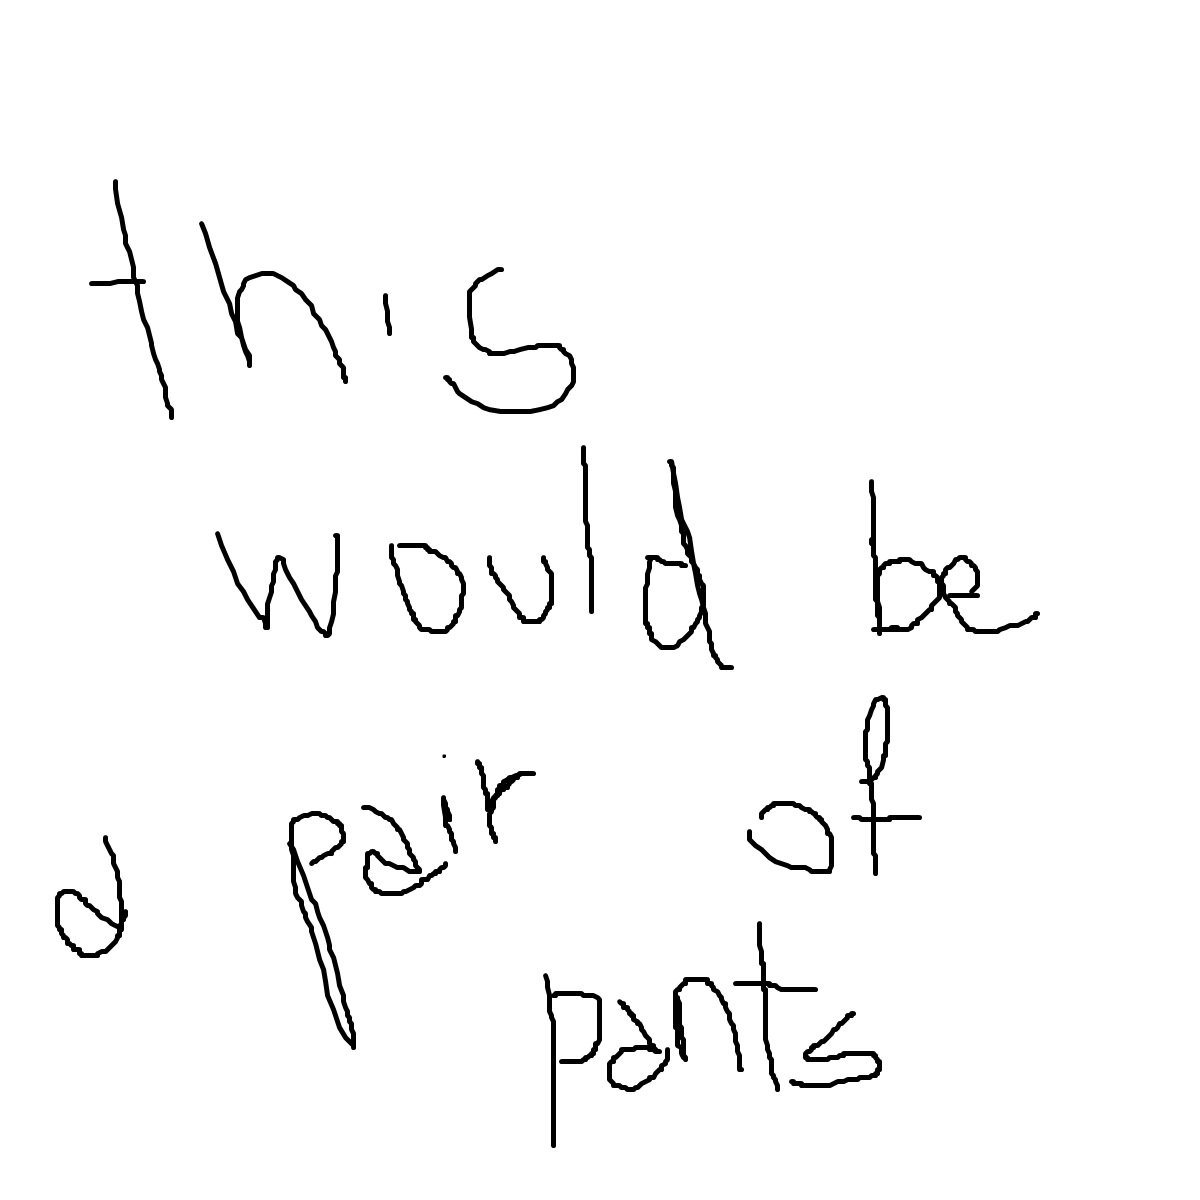 this
would be
a pair of
pants